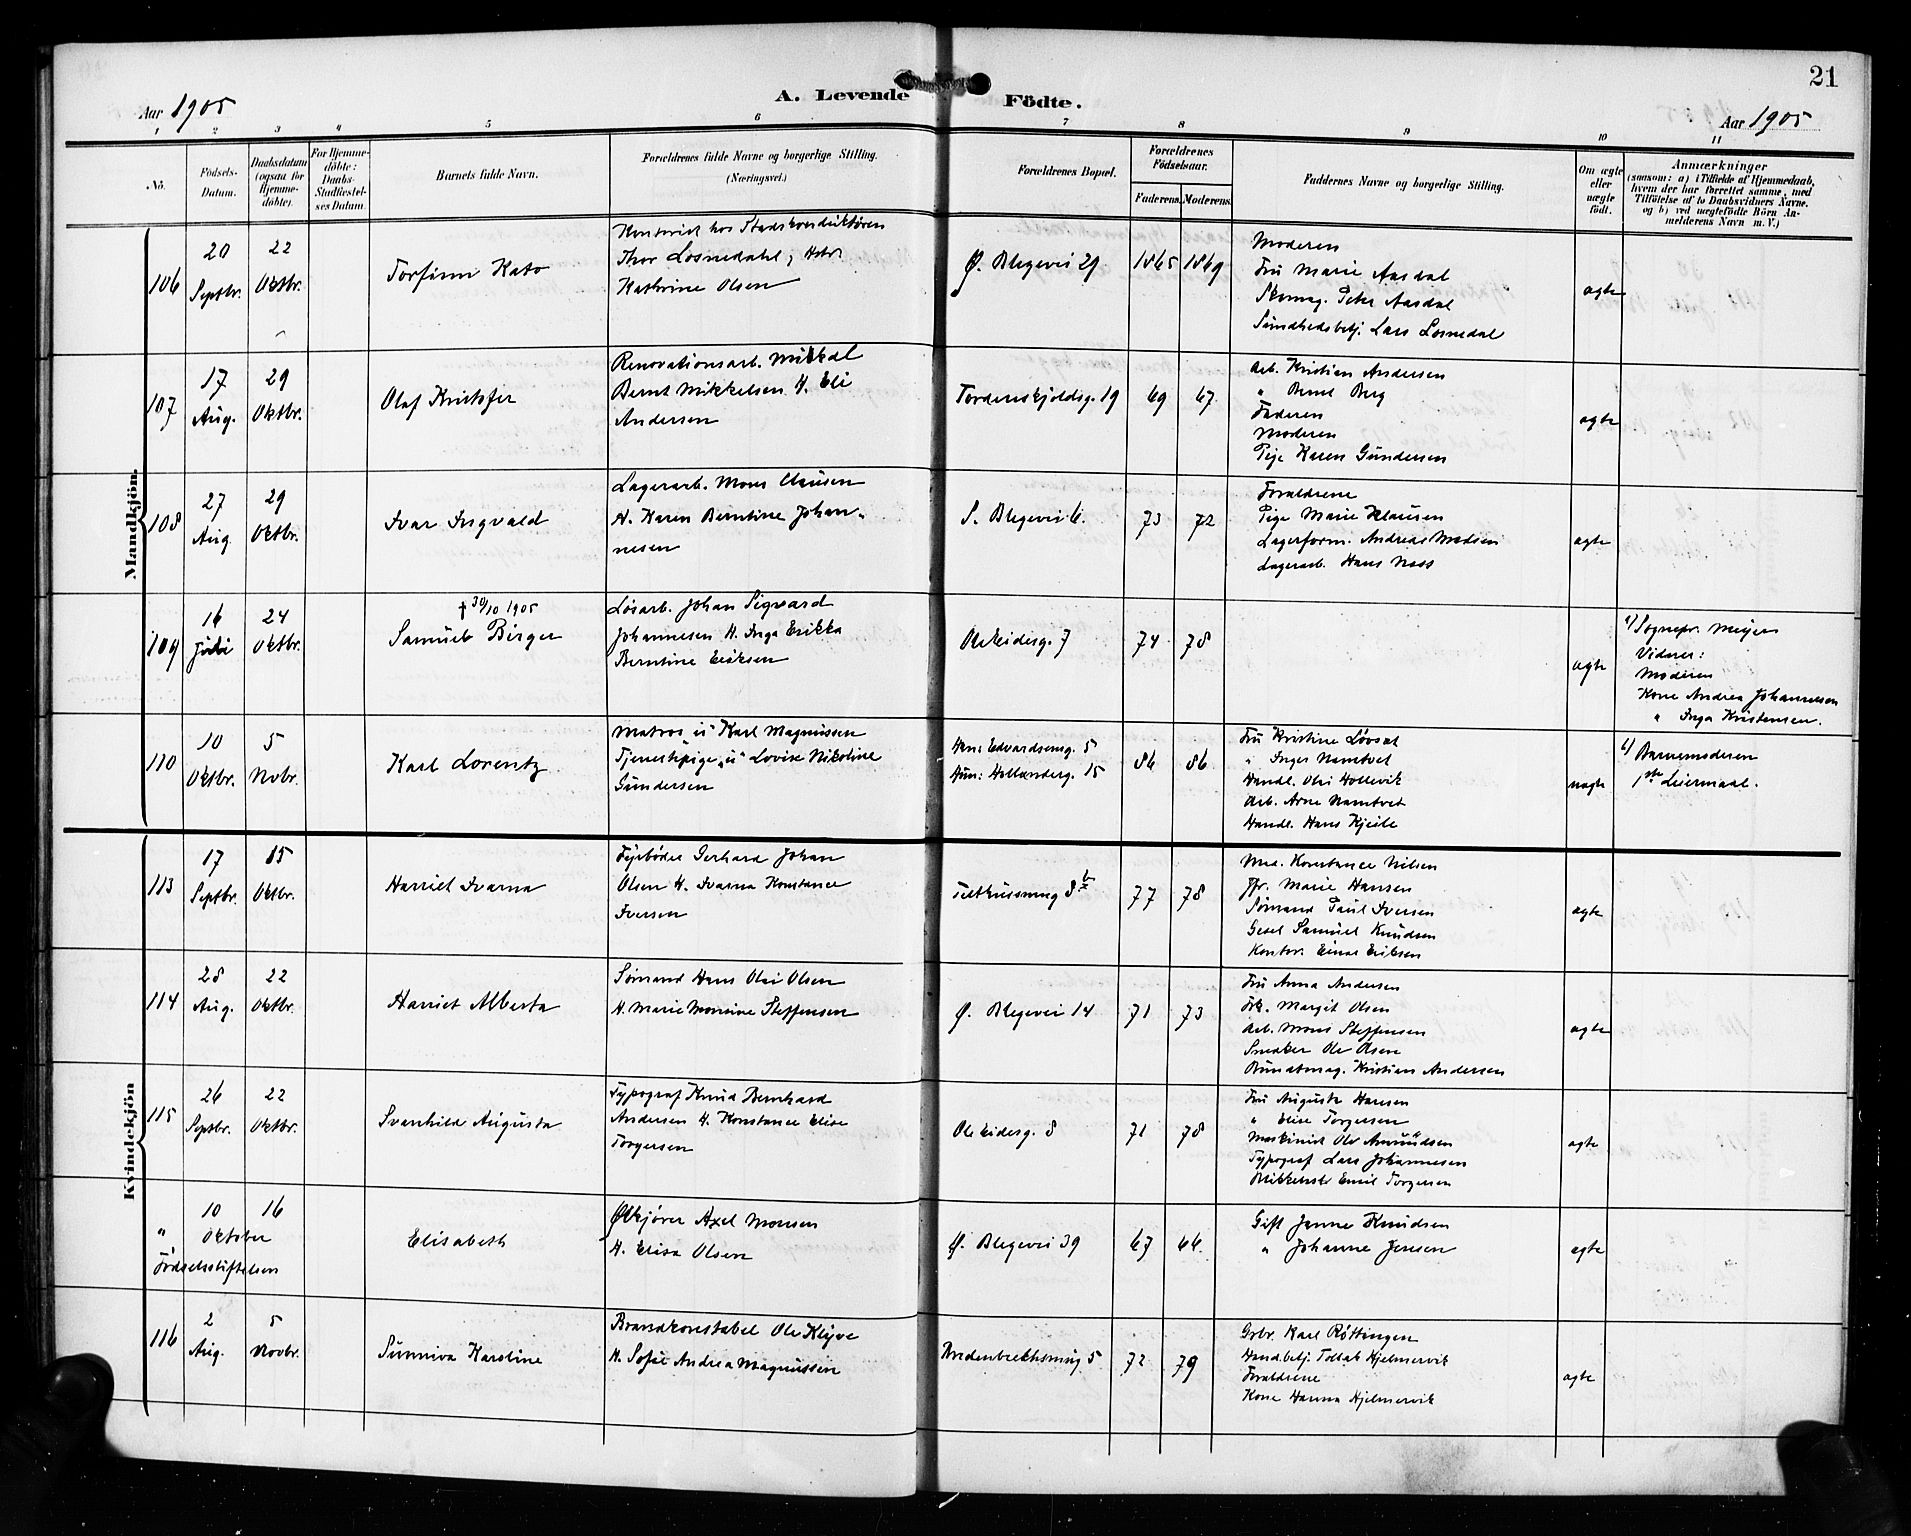 21
Aar 1905
A. Levende Födte.
Aar 1905
1 2 3 4 5 6 7 8 9 10 11
Nö.
Födsels-Datum.
Daabsdatum (ogsaa for Hjemme-döbte).
For Hjemme-döbte: Daabs-Stadfæstel-ses Datum.
Barnets fulde Navn.
Forældrenes fulde Navne og borgerlige Stilling.
(Næringsvei.)
Forældrenes Bopæl.
Forældrenes Födselsaar.
Faderens. Moderens.
Faddernes Navne og borgerlige Stilling.
Om ægte eller uægte födt.
Anmærkninger
(saasom: a) i Tilfælde af Hjemmedaab, hvem der har forrettet samme, med Tilföielse af to Daabsvidners Navne. og b) ved uægtefödte Börn An-melderens Navn m. V.)
Mandkjön.
106
20 Septbr.
22 Oktbr.
Torfinn Kato
Kontorist hos Stadskonduktøren
Thor Losnedahl, Hstr
Kathrine Olsen
Ø. Blegevei 29
1865 1869
Moderen
Fru Marie Aasdal
Skomag. Peter Aasdal
Sundhedsbetj. Lars Losnedal
ægte
107
17 Aug.
29 Oktbr.
Olaf Kristofer
Renovationsarb. Mikkal
Bernt Mikkelsen H. Eli
Andersen
Tordenskjoldsg. 19
69 67
Arb. Kristian Andersen
" Bernt Berg
Faderen
Moderen
Pige Karen Gundersen
ægte
108
27 Aug.
29 Oktbr.
Ivar Ingvald
Lagerarb. Mons Clausen
H. Karen Berntine Johan-
nesen
S. Blegevei 6.
73 72
Forældrene
Pige Marie Klausen
Lagerform. Andreas Madsen
Lagerarb. Hans Ness
ægte
109
16 Juli
24 Oktbr.
† 30/10 1905
Samuel Birger
Løsarb. Johan Sigvard
Johannesen H. Inga Erikka
Berntine Eriksen
Ole Eidesg. 7
74 78
ægte
a) Sognepr. Meyer
Vidner:
Moderen
Kone Andrea Johannesen
" Inga Kristensen.
110
10 Oktbr.
5 Novbr.
Karl Lorentz
Matros u. Karl Magnussen
Tjenestepige u. Lovise Nikoline
Gundersen
Han: Edvardsensg. 5
Hun: Hollendergt. 15
86 86
Fru Kristine Løvset
" Inger Namtvet
Handl. Oli Hollevik
Arb. Arne Namtvet
Handl. Hans Kjeile
uægte
b) Barnemoderen
1ste Leiermaal.
Kvindekjön
113
17 Septbr.
15 Oktbr.
Harriet Ivarna
Fyrbøder Gerhard Johan
Olsen H. Ivarna Konstance
Iversen
77 78
Mad. Konstance Nilsen
Jfr. Marie Hansen
Sømand Paul Iversen
Gesel Samuel Knudsen
Kontor. Einar Eriksen
ægte
114
28 Aug.
22 Oktbr.
Harriet Alberta
Sømand Hans Olai Olsen
H. Marie Monsine Steffensen
Ø. Blegevei 14
71 73
Fru Anna Andersen
Frk. Margit Olsen
Arb. Mons Steffensen
Snedker Ole Olsen
Buntmag. Kristian Andersen
ægte
115
26 Septbr.
22 Oktbr.
Svanhild Augusta
Typograf Knud Bernhard
Andersen H. Konstance Elise
Torgersen
Ole Eidesg. 8
71 78
Fru Augusta Hansen
" Elise Torgersen
Maskinist Ole Amundsen
Typograf Lars Johannesen
Blikkensl. Emil Torgersen
ægte
"
10 16
Oktober
Fødselsstiftelsen
Elisabeth
Ølkjører Axel Monsen
H. Elisa Olsen
Ø. Blegevei 39
67 66
Gift Janna Knudsen
" Johanne Jensen
ægte
116
2 Aug.
5 Novbr.
Sunniva Karoline
Brandkonstabel Ole Kleyve
H. Sofie Andrea Magnussen
72 79
Grbr. Karl Røttingen
Handbetj. Tollak Hjelmervik
Forældrene
Kone Hanna Hjelmervik
ægte